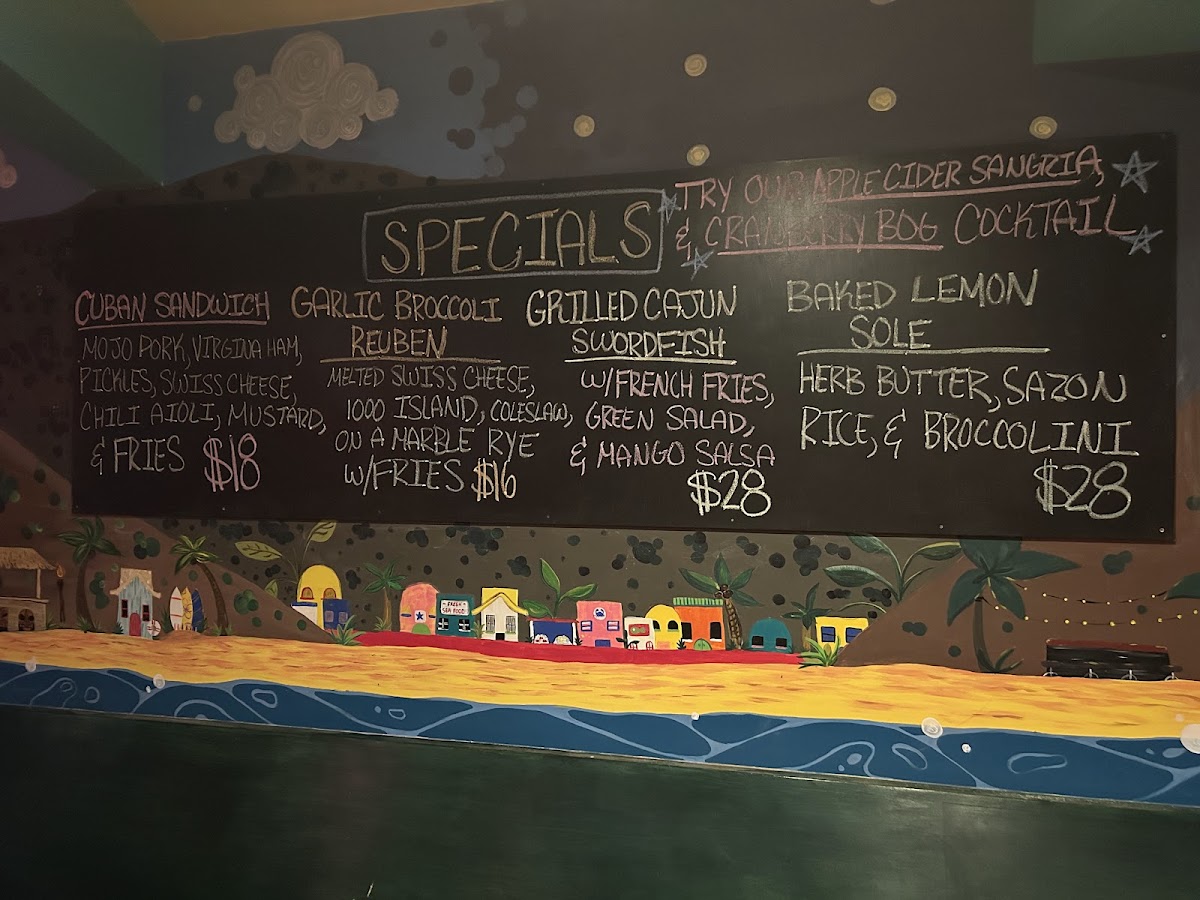 SPECIALS
TRY OUR APPLE CIDER SANGRIA,
& CRANBERRY BOG COCKTAIL
CUBAN SANDWICH
MOJO PORK, VIRGINA HAM,
PICKLES, SWISS CHEESE,
CHILI AIOLI, MUSTARD,
& FRIES $18
GARLIC BROCCOLI
REUBEN
MELTED SWISS CHEESE,
1000 ISLAND, COLESLAW,
ON A MARBLE RYE
W/FRIES $16
GRILLED CAJUN
SWORDFISH
W/FRENCH FRIES,
GREEN SALAD,
& MANGO SALSA
$28
BAKED LEMON
SOLE
HERB BUTTER, SAZON
RICE, & BROCCOLINI
$28
FRESH
SEA FOOD